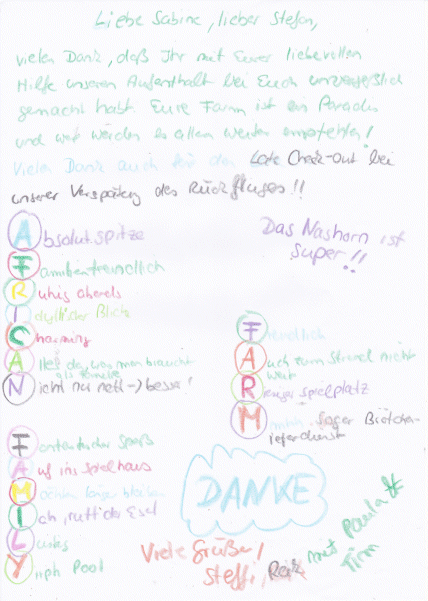 Liebe Sabine, lieber Stefan,
vielen Dank, daß Ihr mit Eurer liebevollen
Hilfe unseren Aufenthalt bei Euch unvergeßlich
gemacht habt. Eure Farm ist ein Paradies
und wir werden es allen weiter empfehlen!
Vielen Dank auch für den Late Check-out bei
unserer Verspätung des Rückfluges!!
Absolut spitze
Familienfreundlich
Ruhig abends
Idyllischer Blick
Charming
Alles da, was man braucht
als Familie
Nicht nur nett -> besser!
Das Nashorn ist
super!!
Freundlich
Auch zum Strand nicht
weit
Riesiger Spielplatz
M Brötchen-
lieferdienst
F der Spaß
Auf ins Spielhaus
Möchten länger bleiben
Iah, ruft der Esel
L
Y Pool
DANKE
Viele Grüße,
Steffi, mit Paula &
Tim